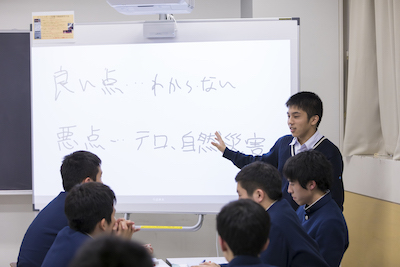 良い点…わからない
悪点…テロ、自然災害